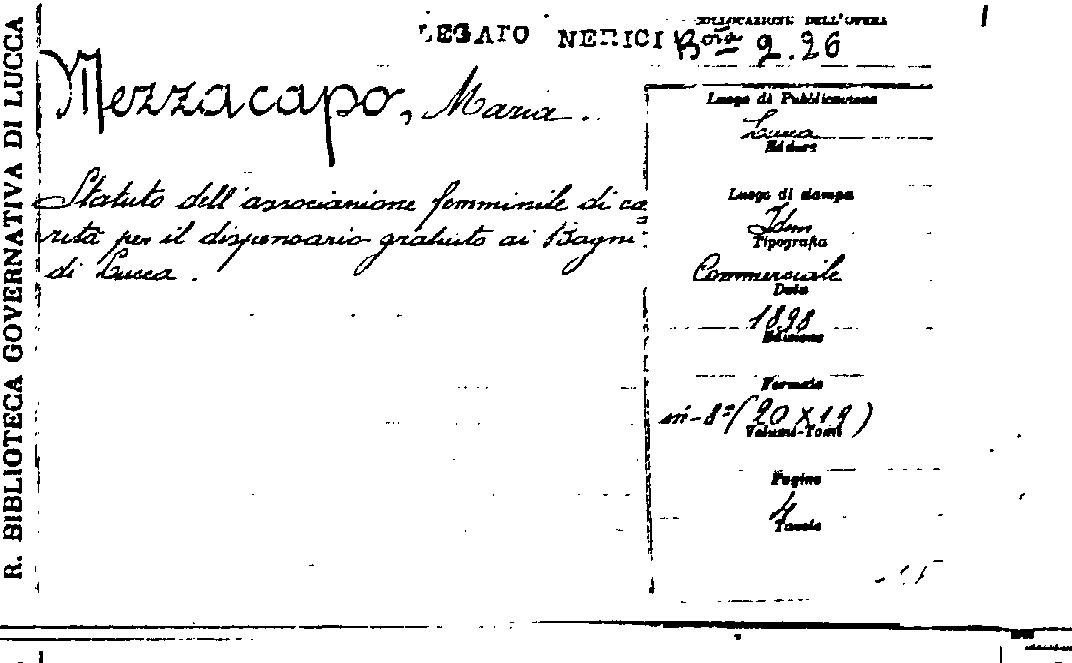 R. BIBLIOTECA GOVERNATIVA DI LUCCA
LEGATO NERICI
COLLOCAZIONE DELL'OPERA
Bta 2.26
Mezzacapo, Maria.
Statuto dell'associazione femminile di ca=
rità per il dispensario gratuito ai Bagni
di Lucca.
Luogo di Pubblicazione
Lucca
Editore
Luogo di stampa
Idem
Tipografia
Commerciale
Data
1898
Edizione
Formato
in-8º (20 x 12)
Volumi-Tomi
Pagine
4
Tavole